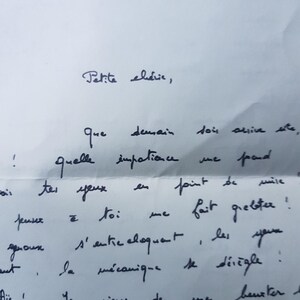 Petite chérie,
Que demain soir arrive vite,
! Quelle impatience me prend
tes yeux en point de mire
penser à toi me fait grelotter !
genoux s'entrechoquent, les yeux
, la mécanique se dérègle !